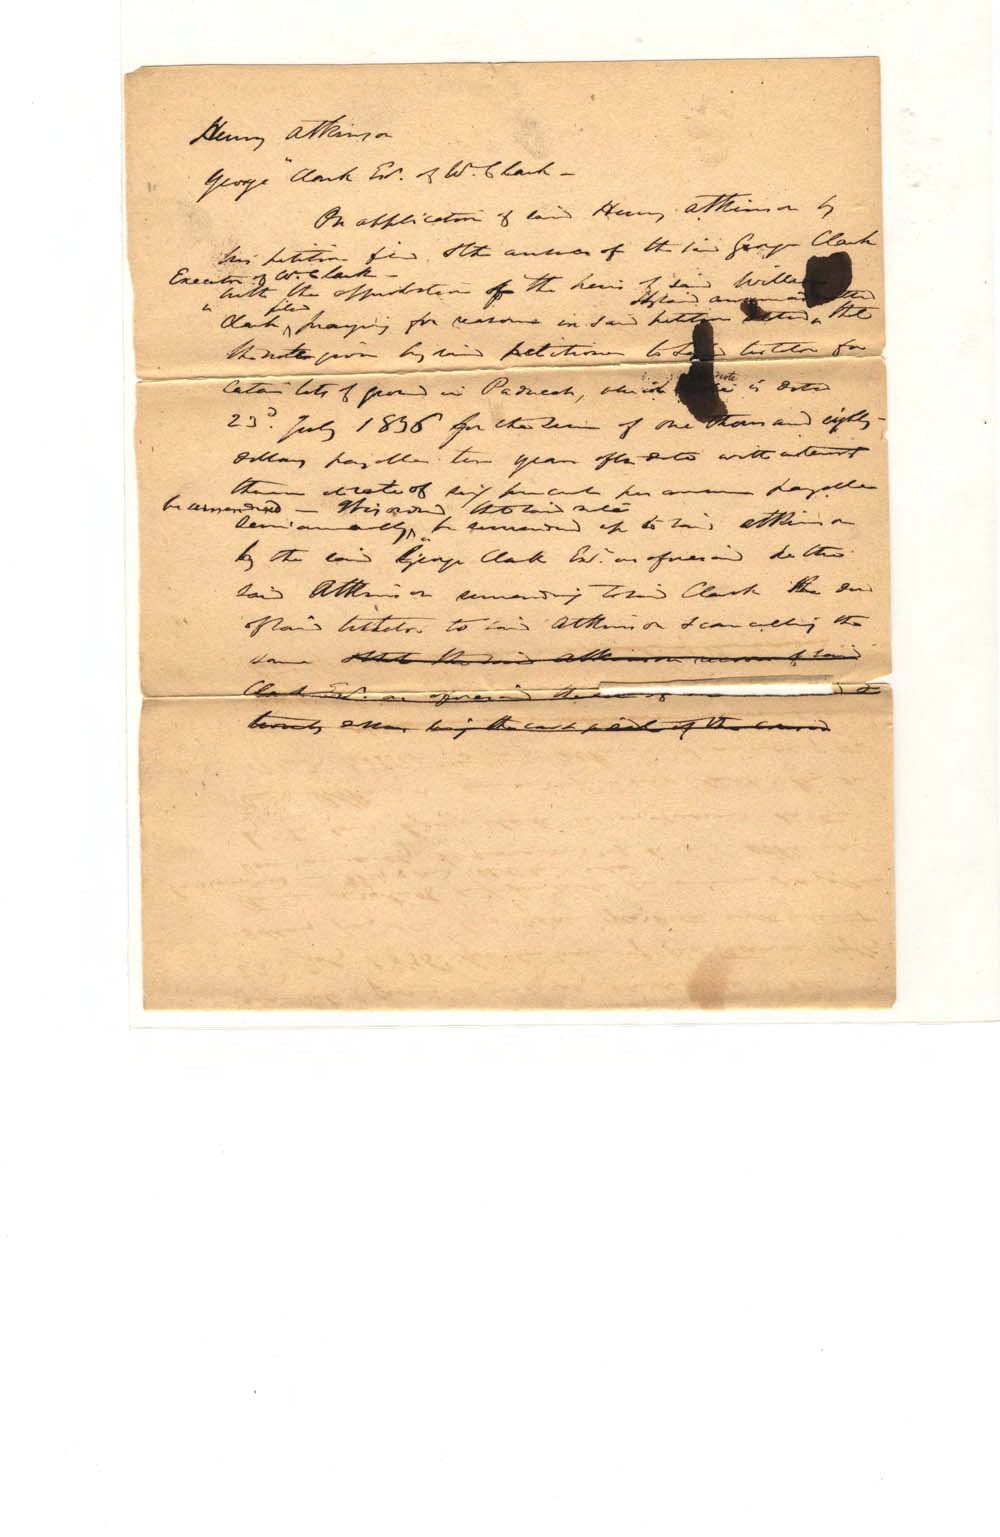 Henry Atkinson
"
George Clark Exr. of Wm. Clark —
On application of said Henry Atkinson by
his petition filed & the answer of the said George Clark
Executor of Wm. Clark —
with the approbation of the heirs of said William
" filed & said answer
Clark, praying for reasons in said petition stated, that
the notes given by said petitioner to said testator for
certain lots of ground in Paducah, which note is dated
23d. July 1836 for the sum of one thousand eighty
dollars payable ten years after date with interest
thereon at rate of six per cent per annum payable
be surrendered — It is ordered that said note
semiannually, be surrendered up to said Atkinson
by the said George Clark Exr. as aforesaid & the
said Atkinson surrendering to said Clark the deed
of said testator to said Atkinson & cancelling the
same & that the said Atkinson recover of said
Clark Exr. as aforesaid the sum of &
twenty dollars being the cash paid of the